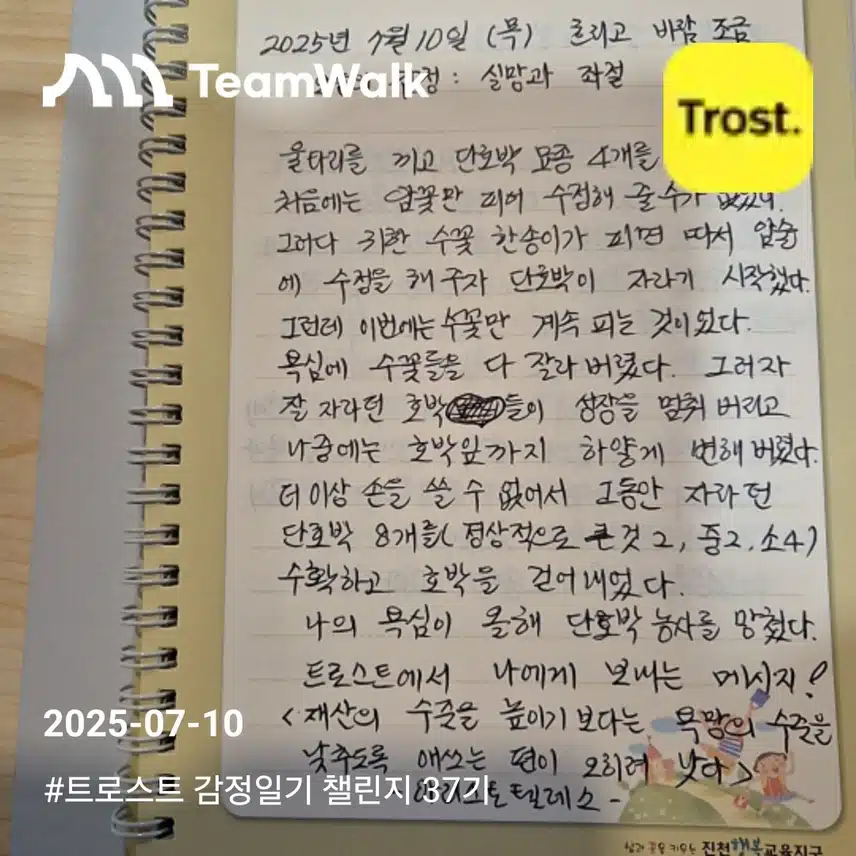 2025년 7월 10일 (목) 흐리고 바람 조금
TeamWalk
감정 : 실망과 좌절
Trost.
울타리를 끼고 단호박 모종 4개를
처음에는 암꽃만 피어 수정해 줄 수가 없었다.
그러다 귀한 수꽃 한송이가 피면 따서 암술
에 수정을 해 주자 단호박이 자라기 시작했다.
그런데 이번에는 수꽃만 계속 피는 것이었다.
욕심에 수꽃들을 다 잘라 버렸다. 그러자
잘 자라던 호박들이 성장을 멈춰 버리고
나중에는 호박잎까지 하얗게 변해 버렸다.
더 이상 손을 쓸 수 없어서 그동안 자라던
단호박 8개를(정상적으로 큰것 2, 중2, 소4)
수확하고 호박을 걷어내었다.
나의 욕심이 올해 단호박 농사를 망쳤다.
트로스트에서 나에게 보내는 메시지!
<재산의 수준을 높이기 보다는 욕망의 수준을
낮추도록 애쓰는 편이 오히려 낫다>
- 아리스토텔레스 -
2025-07-10
#트로스트 감정일기 챌린지 37기
진천행복교육지구